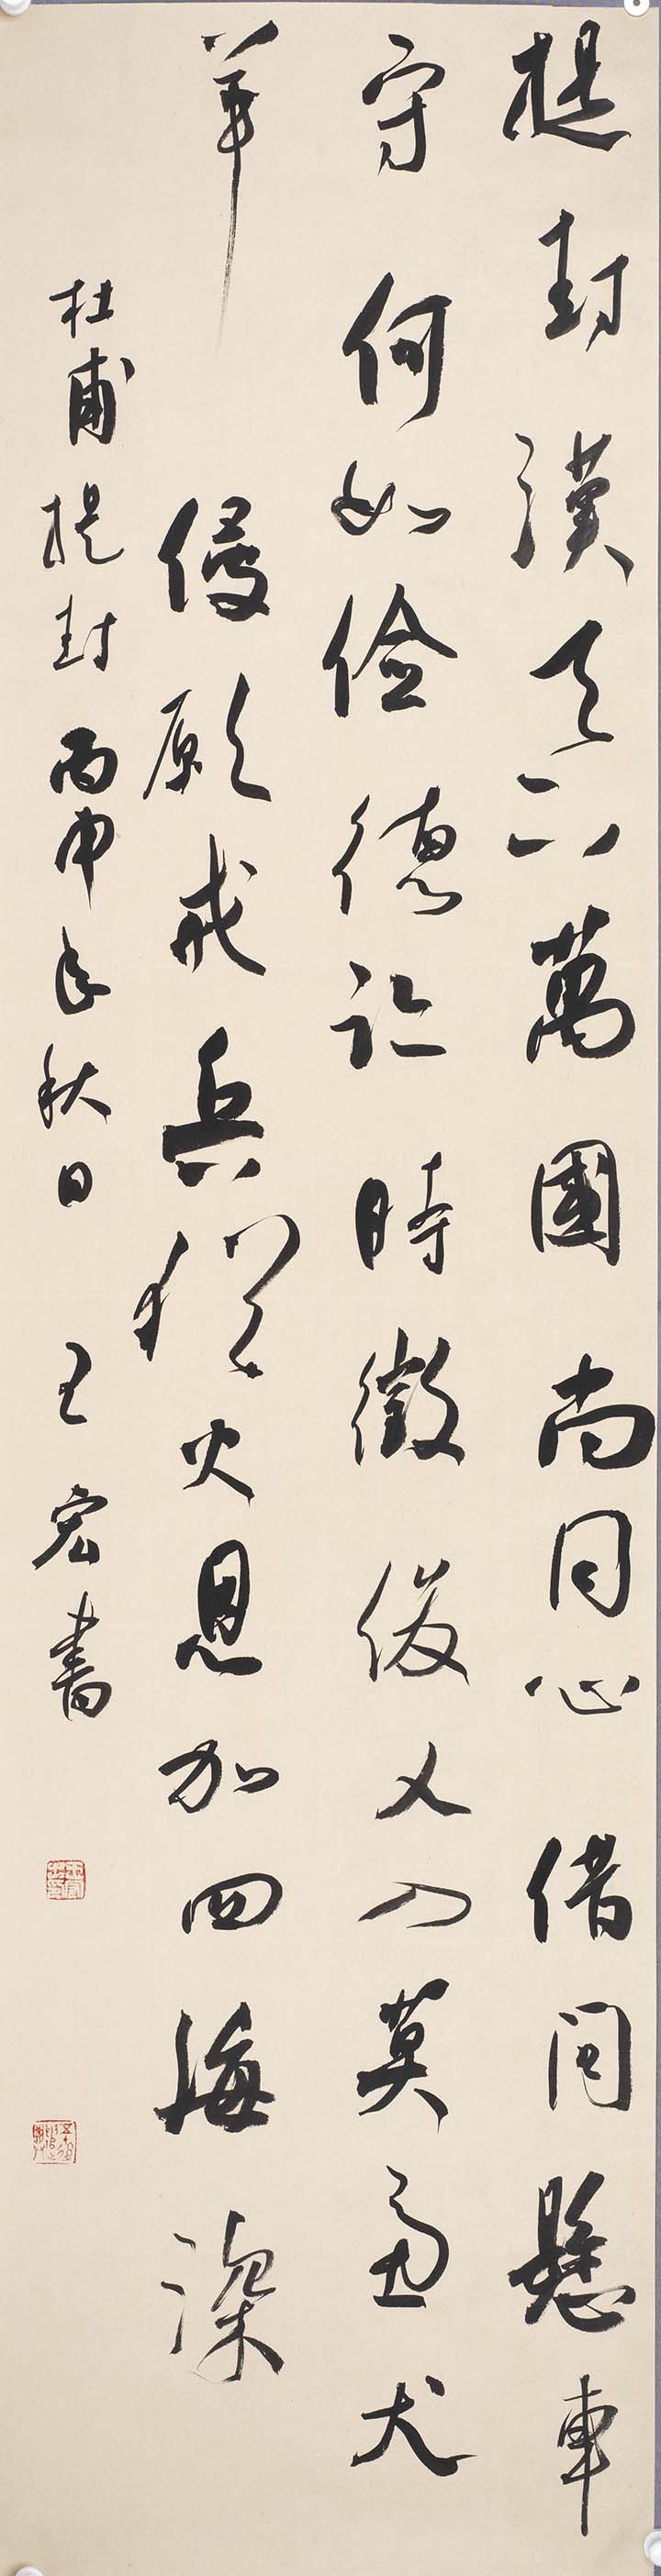 提封漢天下萬國尚同心借問懸車
守何如儉德臨時徵俊乂入莫慮犬
羊侵願戒兵猶火恩加四海深
杜甫提封丙申年秋日王宏書